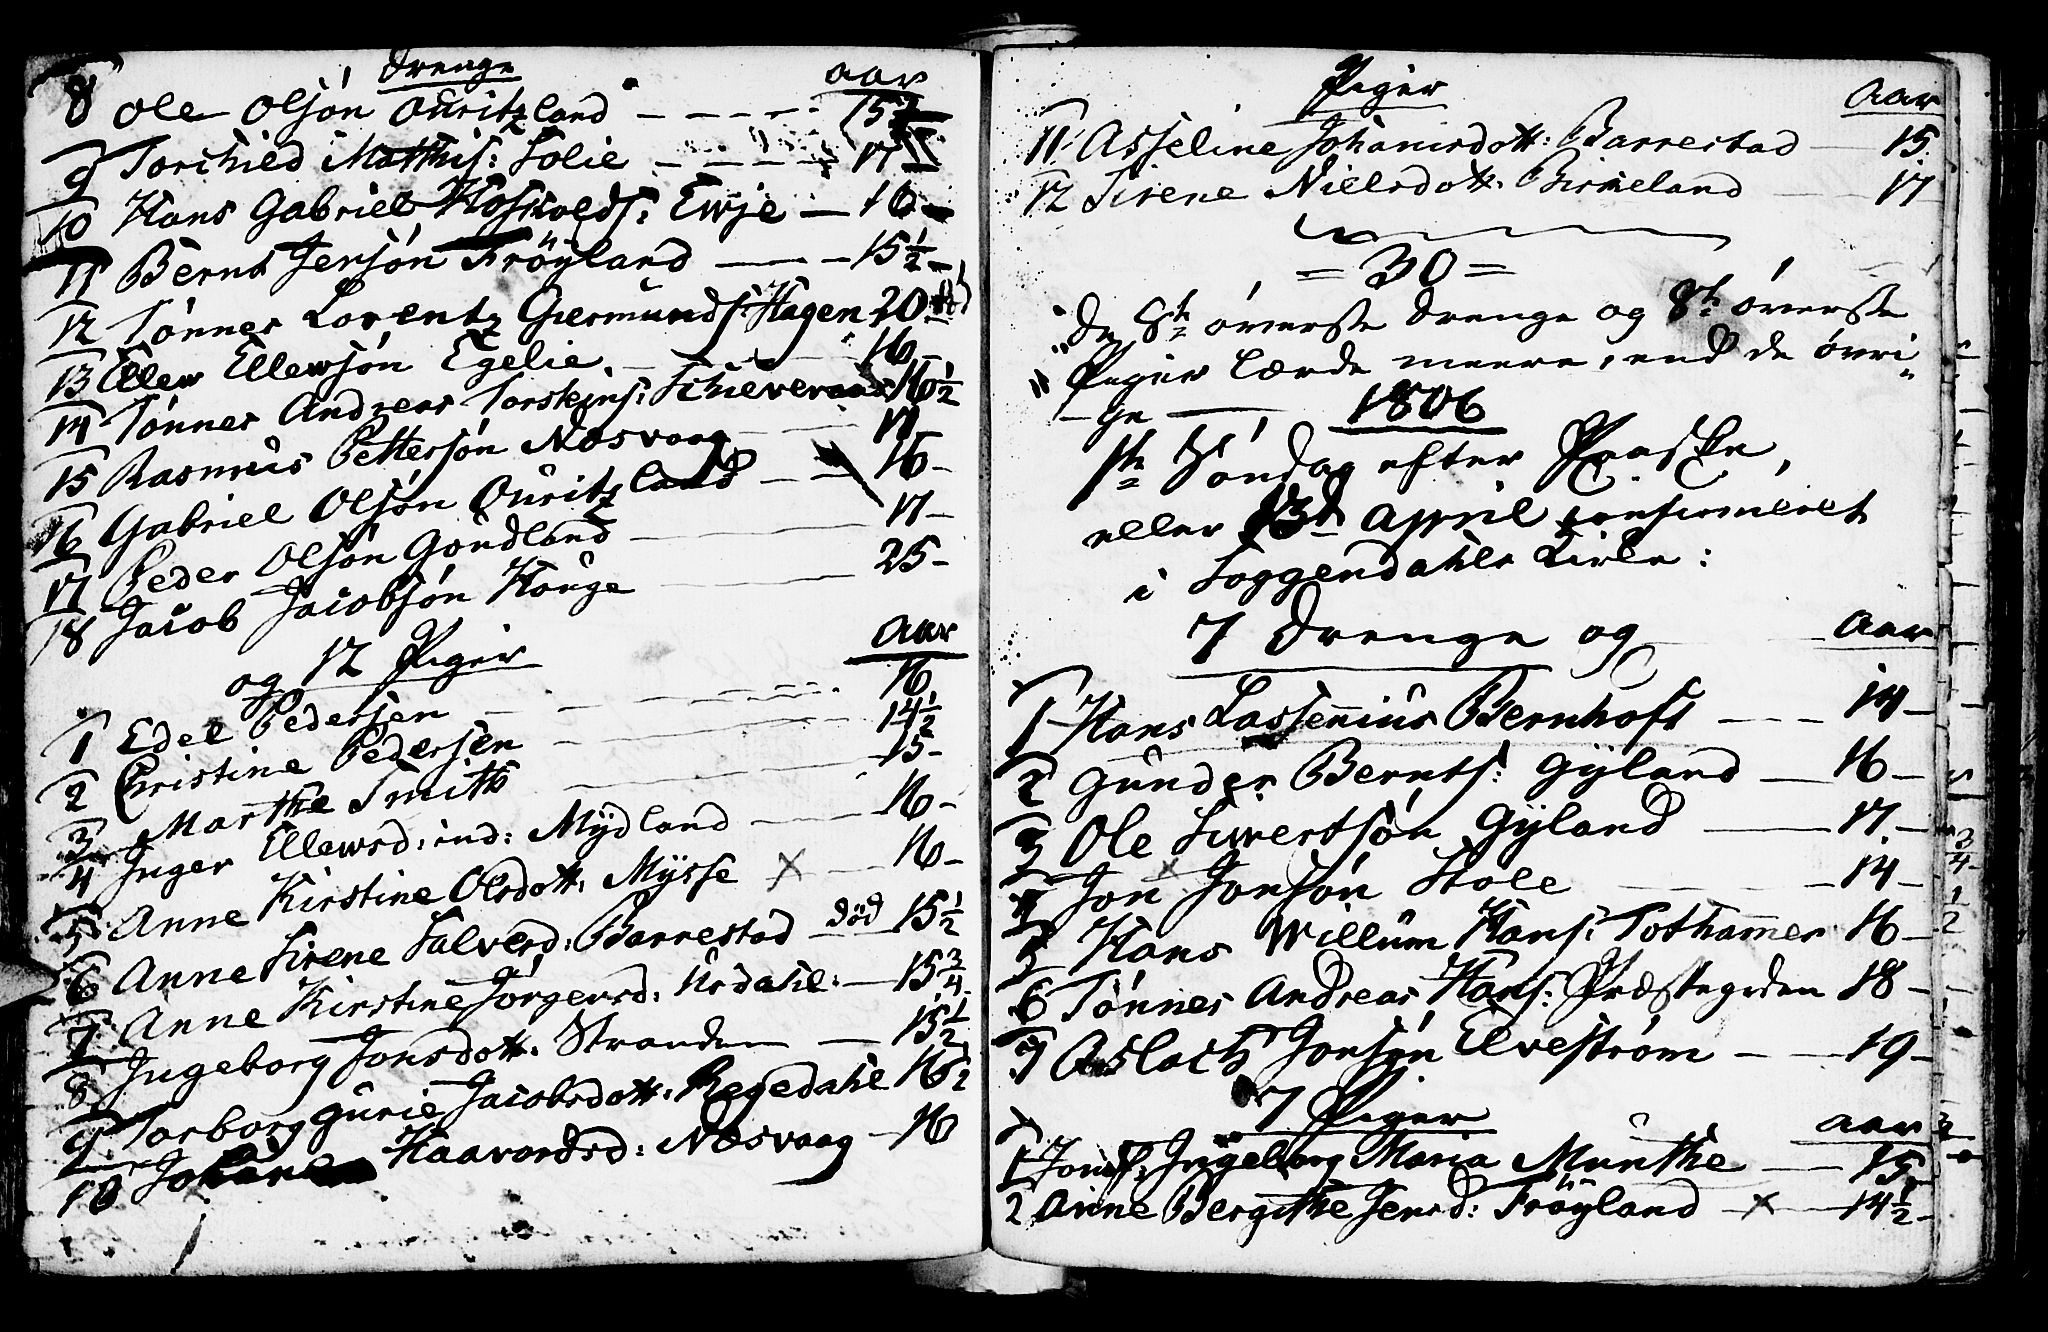 Drenge Aar
8 Ole Olsøn Ouritzland 15 1/2
9 Torchild Matthis: Solie 17
10 Hans Gabriel Hoskolds: Ewje 16
11 Bernt Jensøn Frøyland 15 1/2
12 Tønnes Lorentz Giermunds: Hagen 20
13 Ellew Ellewsøn Egelie 16
14 Tønnes Andreas Torsteins: Schieveraas 16 1/2
15 Rasmus Pettersøn Nøsvaag 17
16 Gabriel Olsøn Ouritzland 16
17 Peder Olsøn Gondland 17
18 Jacob Jacobsøn Houge 25
og 12 Piger Aar
1 Edel Pedersen 16
2 Christine Pedersen 14 1/2
3 Marthe Smith 15
4 Inger Ellewsd: ind: Mydland 16
5 Anne Kirstine Olsdott: Mysse × 16
6 Anne Sirene Salvesd: Barrestad død 15 1/2
7 Anne Kirstine Jørgensd: Urdahl: 15 3/4
8 Ingeborg Jonsdott: Stranden 15 1/2
9 Torborg Gurie Jacobsdott: Regedahl 16 1/2
10 Haavordsd: Nøsvaag 16
Piger Aar
11 Asseline Johannsdott: Barrestad 15
12 Sirene Nielsdott: Birkeland 17
= 30 =
" De 8te øverste Drenge og 8te øverste
" Piger lærde meere, end de øvri-
-ge
1806
1te Søndag efter Paaske,
eller 13de April confirmeret
i Soggendahls Kirke:
7 Drenge og Aar
1 Hans Lassenius Bernhoft 14
2 Gunder Bernts: Gyland 16
3 Ole Sivertsøn Gyland 17
4 Jon Jonsøn Stole 14
5 Hans Willum Hans: Tothammer 16
6 Tønnes Andreas Hans: Præstegrden 18
7 Aslach Jonsøn Elvestrøm 19
7 Piger Aar
1 Jomf: Ingeborg Maria Munthe 15
2 Anne Bergithe Jensd: Frøyland × 14 1/2